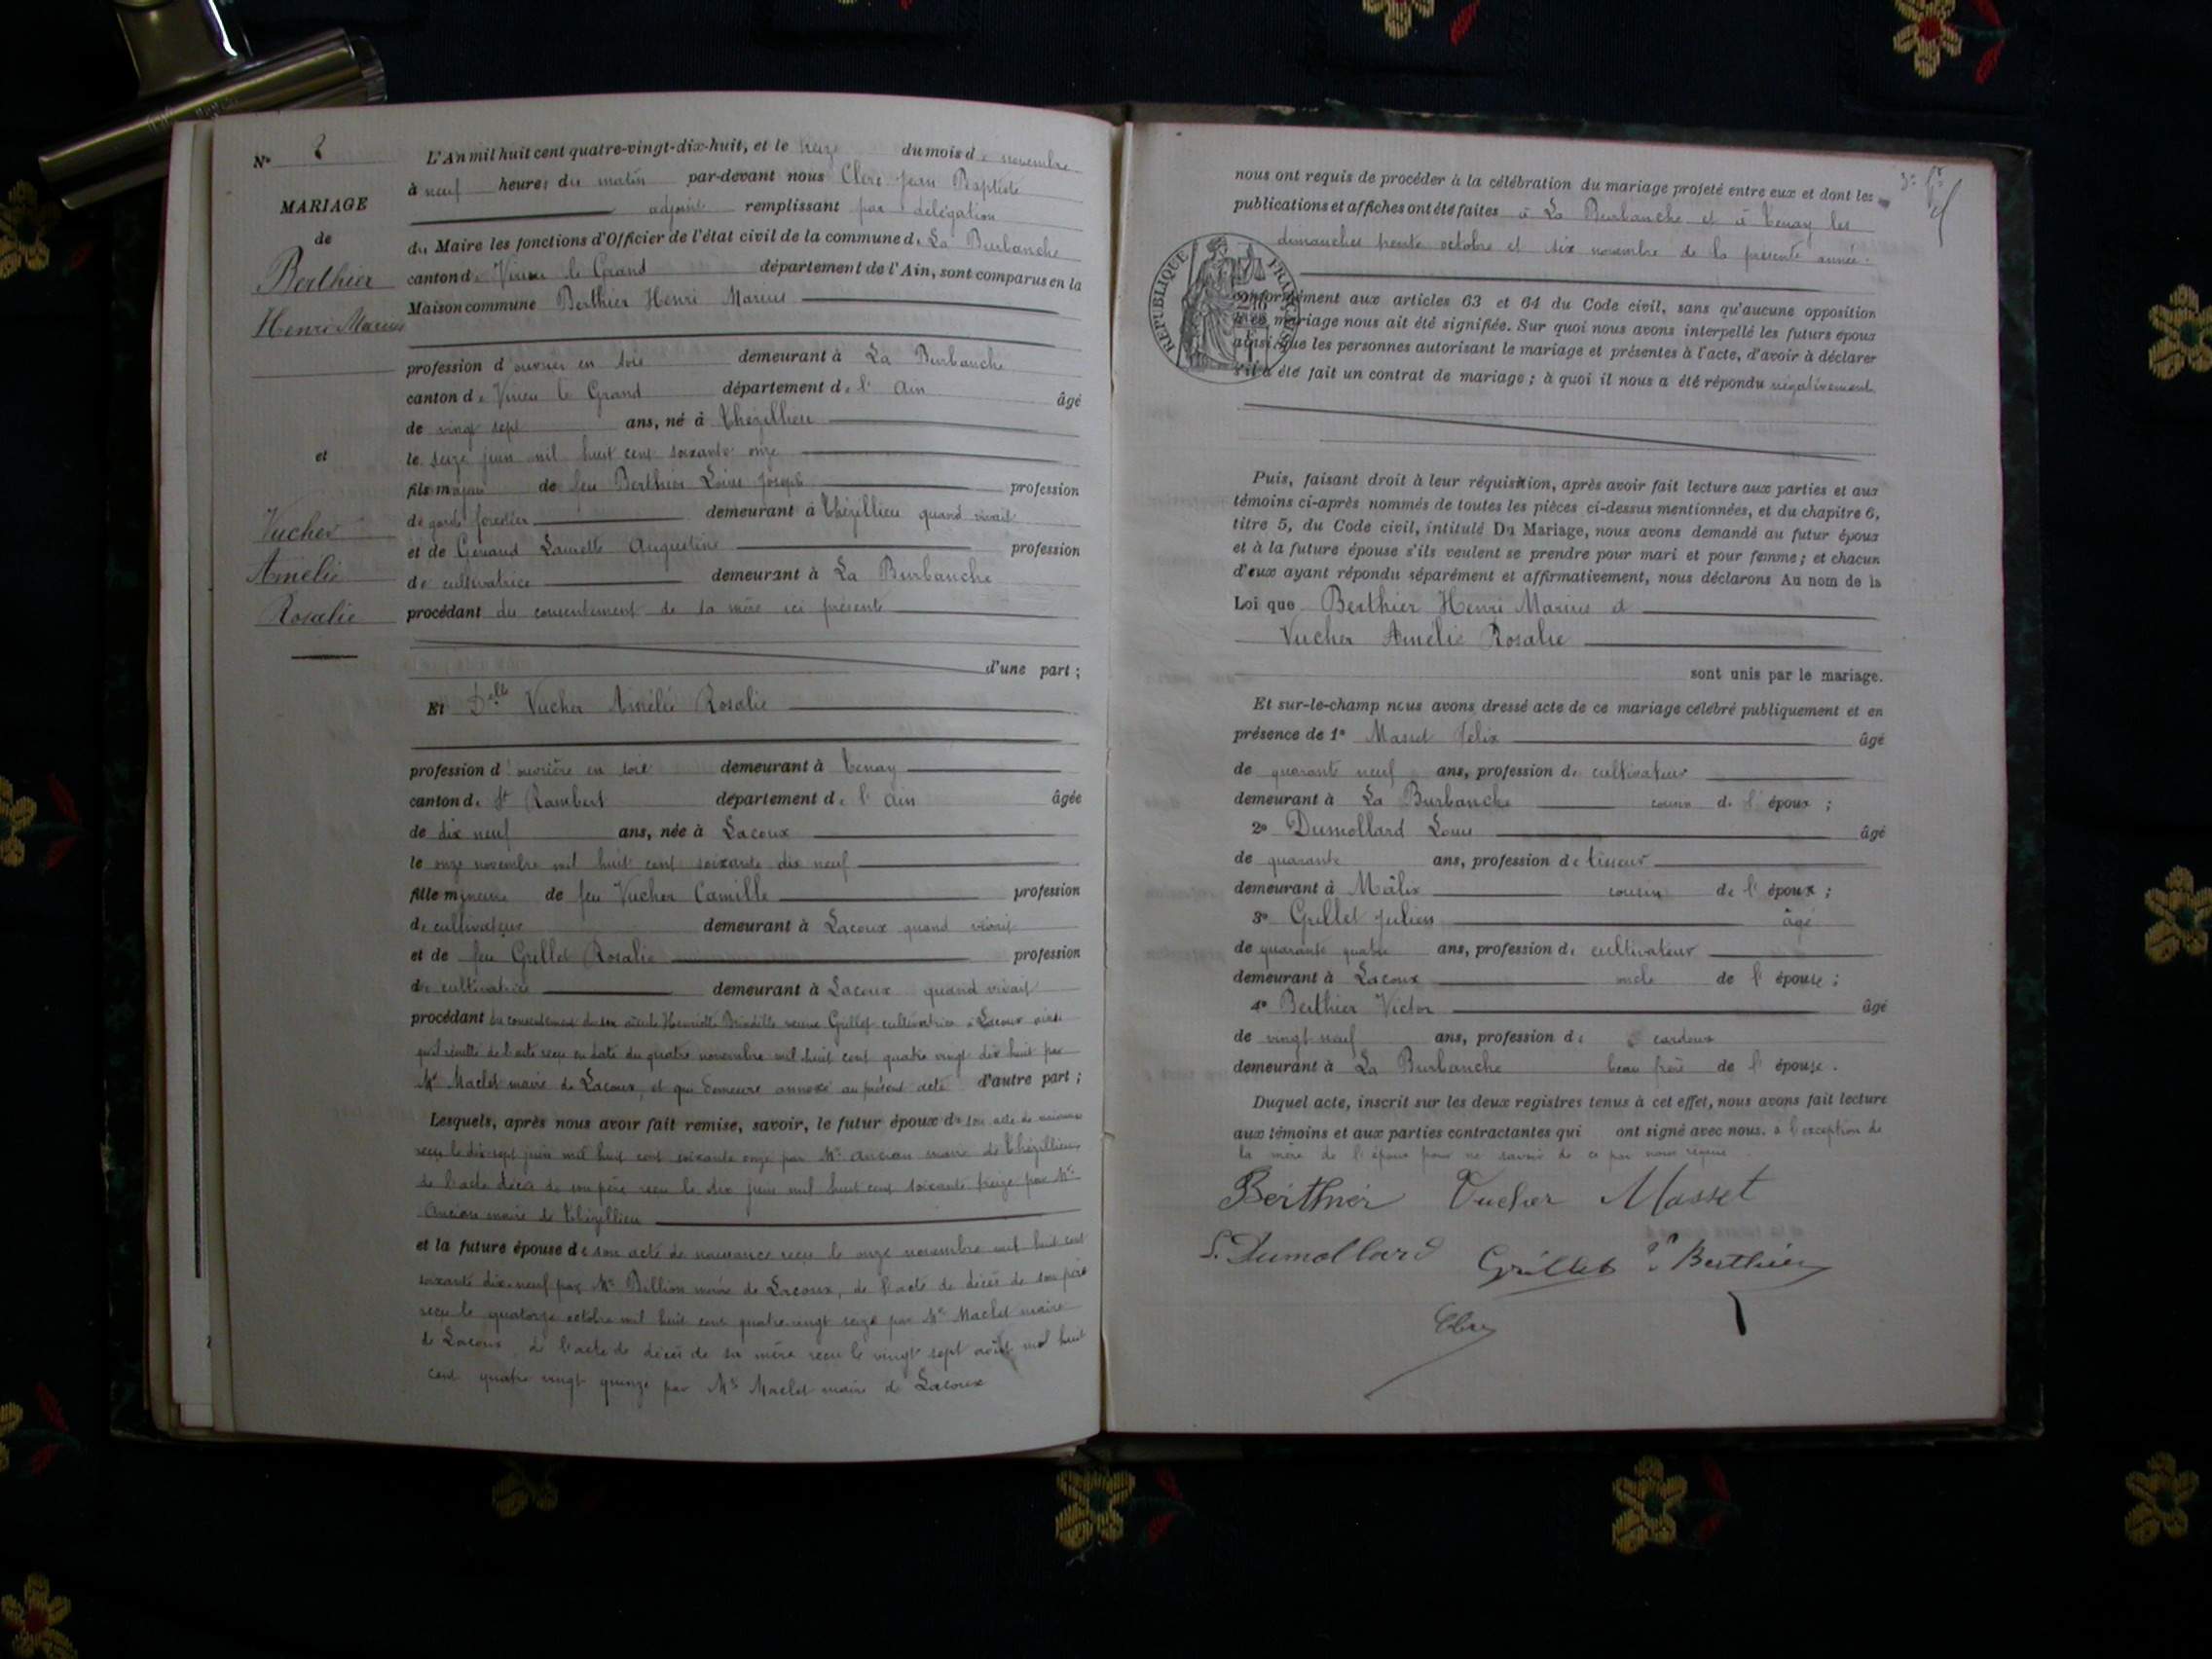 N° 2
MARIAGE
de
Berthier
Henri Marius
et
Vucher
Amélie
Rosalie
L'An mil huit cent quatre-vingt-dix-huit, et le du mois de novembre
à neuf heures du matin par-devant nous Clerc Jean Baptiste
adjoint remplissant par délégation
du Maire les fonctions d'Officier de l'état civil de la commune de La Burbanche
canton de Virieu le Grand département de l'Ain, sont comparus en la
Maison commune Berthier Henri Marius
profession d'ouvrier en soie demeurant à La Burbanche
canton de Virieu le Grand département de l'Ain âgé
de vingt sept ans, né à Thézillieu
le seize juin mil huit cent soixante onze
fils majeur de feu Berthier Louis Joseph profession
de garde forestier demeurant à Thézillieu quand vivait
et de Genand Laurette Augustine profession
de cultivatrice demeurant à La Burbanche
procédant du consentement de sa mère ici présente
d'une part ;
Et Delle Vucher Amélie Rosalie
profession d'ouvrière en soie demeurant à Tenay
canton de St Rambert département de l'Ain âgée
de dix neuf ans, née à Lacoux
le onze novembre mil huit cent soixante dix neuf
fille mineure de feu Vucher Camille profession
de cultivateur demeurant à Lacoux quand vivait
et de feu Grillet Rosalie profession
de cultivatrice demeurant à Lacoux quand vivait
procédant du consentement de son aïeule Henriette veuve Grillet cultivatrice à Lacoux ainsi
qu'il résulte de l'acte reçu en date du quatre novembre mil huit cent quatre vingt dix huit par
Mr Maclet maire de Lacoux, et qui demeure annexé au présent acte d'autre part ;
Lesquels, après nous avoir fait remise, savoir, le futur époux de son acte de naissance
reçu le dix sept juin mil huit cent soixante onze par Mr Ancian maire de Thézillieu
de l'acte décès de son père reçu le dix juin mil huit cent soixante treize par Mr
Ancian maire de Thézillieu
et la future épouse de son acte de naissance reçu le onze novembre mil huit cent
soixante dix-neuf par Mr Billion maire de Lacoux, de l'acte de décès de son père
reçu le quatorze octobre mil huit cent quatre-vingt seize par Mr Maclet maire
de Lacoux, de l'acte de décès de sa mère reçu le vingt sept août mil huit
cent quatre vingt quinze par Mr Maclet maire de Lacoux
nous ont requis de procéder à la célébration du mariage projeté entre eux et dont les
publications et affiches ont été faites à La Burbanche et à Tenay les
dimanches trente octobre et six novembre de la présente année.
RÉPUBLIQUE FRANÇAISE
conformément aux articles 63 et 64 du Code civil, sans qu'aucune opposition
à ce mariage nous ait été signifiée. Sur quoi nous avons interpellé les futurs époux
ainsi que les personnes autorisant le mariage et présentes à l'acte, d'avoir à déclarer
s'il a été fait un contrat de mariage ; à quoi il nous a été répondu négativement
Puis, faisant droit à leur réquisition, après avoir fait lecture aux parties et aux
témoins ci-après nommés de toutes les pièces ci-dessus mentionnées, et du chapitre 6,
titre 5, du Code civil, intitulé Du Mariage, nous avons demandé au futur époux
et à la future épouse s'ils veulent se prendre pour mari et pour femme ; et chacun
d'eux ayant répondu séparément et affirmativement, nous déclarons Au nom de la
Loi que Berthier Henri Marius et
Vucher Amélie Rosalie
sont unis par le mariage.
Et sur-le-champ nous avons dressé acte de ce mariage célébré publiquement et en
présence de 1° Masset Félix âgé
de quarante neuf ans, profession de cultivateur
demeurant à La Burbanche cousin de l'époux ;
2° Dumollard Louis âgé
de quarante ans, profession de tisseur
demeurant à Mâlix cousin de l'époux ;
3° Grillet Julien âgé
de quarante quatre ans, profession de cultivateur
demeurant à Lacoux oncle de l'épouse ;
4° Berthier Victor âgé
de vingt neuf ans, profession de cardeur
demeurant à La Burbanche beau frère de l'épouse.
Duquel acte, inscrit sur les deux registres tenus à cet effet, nous avons fait lecture
aux témoins et aux parties contractantes qui ont signé avec nous. à l'exception de
la mère de l'époux pour ne savoir de ce par nous requis
Berthier Vucher Masset
L. Dumollard Grillet V. Berthier
Clerc